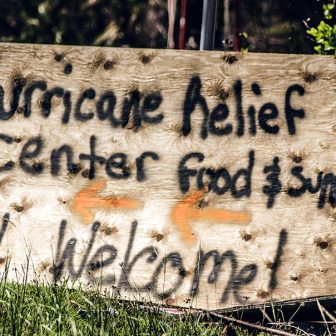 urricane Relief
Center Food & Sup
Welcome!